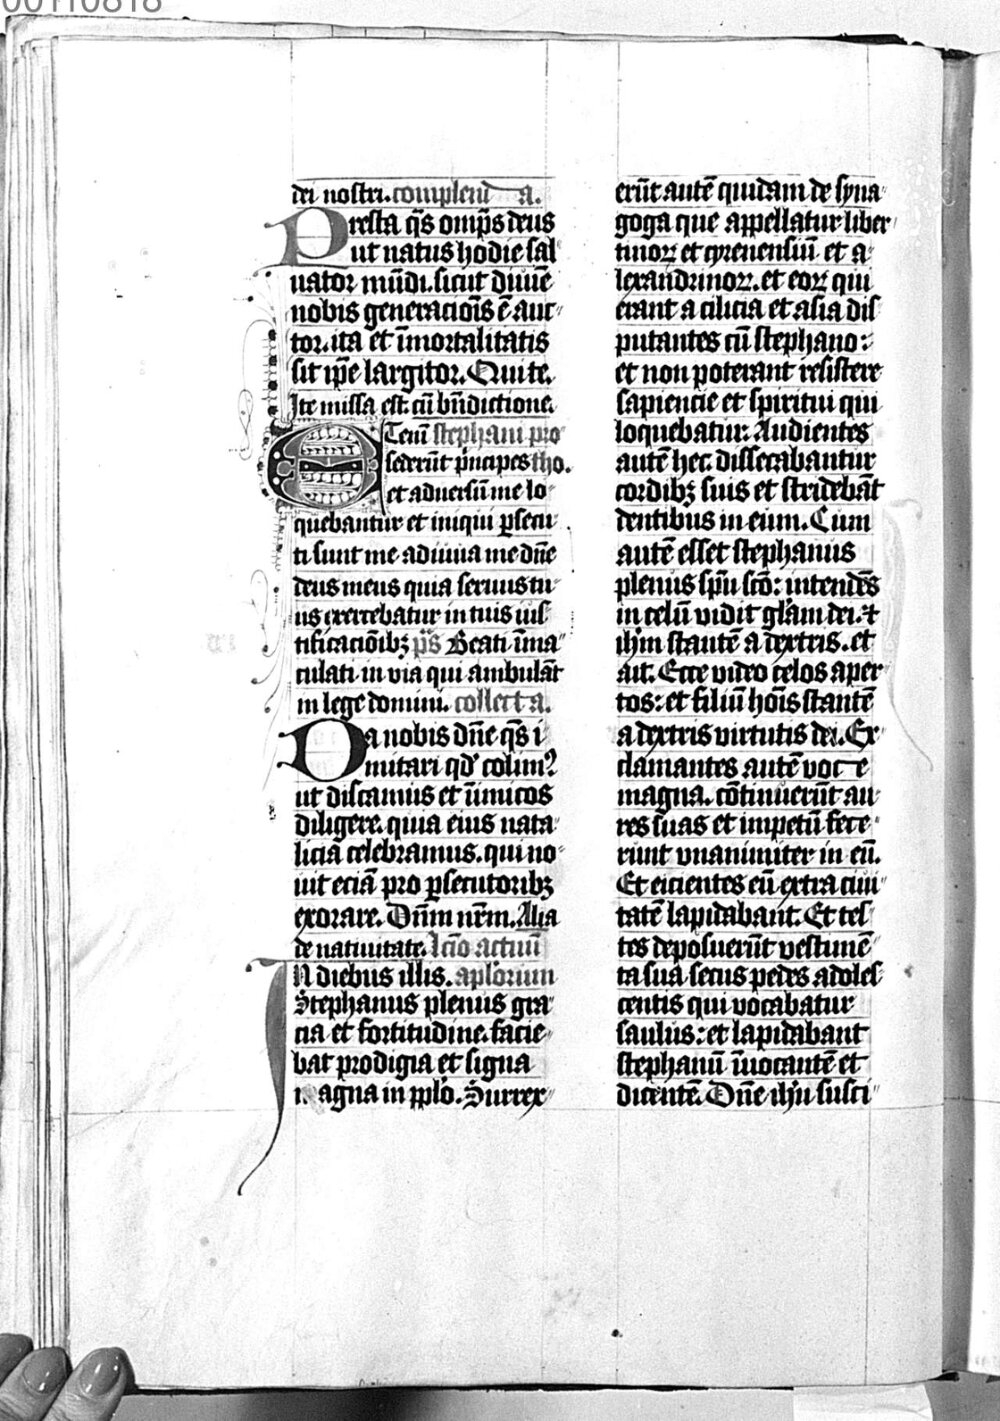 00110818
dei nostri. complend a.
Presta q̄s om̄ps deus
ut natus hodie sal
uator mūdi. sicut diuīe
nobis generaciōis ē auc
tor. ita et īmortalitatis
sit ip̄e largitor. Qui te.
Ite missa est. cū bn̄dictione.
Etenī stephani pro
sederūt p̄ncipes tho.
et aduersū me lo
quebantur et iniqui ꝑsecu
ti sunt me adiuua me dn̄e
deus meus quia seruus tu
us exercebatur in tuis ius
tificaciōibꝫ p̄s Beati īma
culati in via qui ambulāt
in lege domini. collecta.
Da nobis dn̄e q̄s i
mitari qd̓ colimꝰ
ut discamus et īimicos
diligere. quia eius nata
licia celebramus. qui no
uit eciā pro ꝑsecutoribꝫ
exorare. Dn̄m nr̄m. Alia
de natiuitate. lc̄io actuū
In diebus illis. apl̄orum
Stephanus plenus gra
cia et fortitudine. facie
bat prodigia et signa
magna in ppl̄o. Surrex
erūt autē quidam de syna
goga que appellatur liber
tinoꝝ et cyrenensiū et a
lexandrinoꝝ. et eoꝝ qui
erant a cilicia et asia dis
putantes cū stephano:
et non poterant resistere
sapiencie et spiritui qui
loquebatur. Audientes
autē hec. dissecabantur
cordibꝫ suis et stridebāt
dentibus in eum. Cum
autē esset stephanus
plenus sp̄u sc̄o: intendēs
in celū vidit gl̄am dei. ⁊
ih̄m stantē a dextris. et
ait. Ecce video celos aper
tos: et filiū hoīs stantē
a dextris virtutis dei. Ex
clamantes autē voce
magna. cōtinuerūt au
res suas et impetū fece
runt vnanimiter in eū.
Et eicientes eū extra ciui
tatē lapidabant. Et tes
tes deposuerūt vestimē
ta sua secus pedes adoles
centis qui vocabatur
saulus: et lapidabant
stephanū īuocantē et
dicentē. Dn̄e ih̄u susci